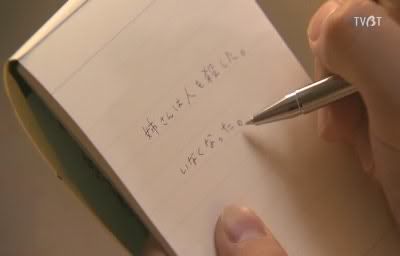 TVBT
姉さんは人を殺した。
いなくなった。